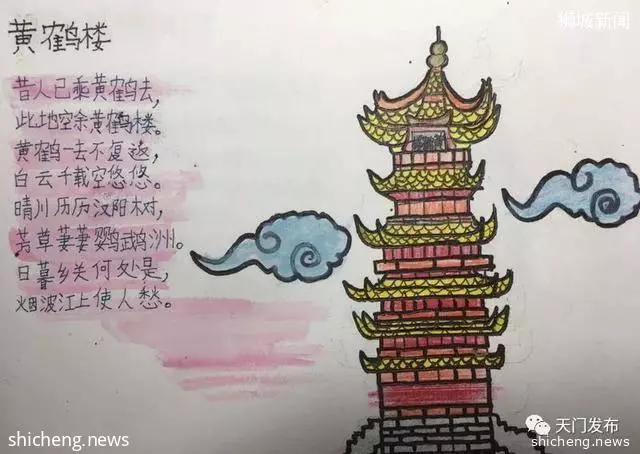 黄鹤楼
昔人已乘黄鹤去,
此地空余黄鹤楼。
黄鹤一去不复返,
白云千载空悠悠。
晴川历历汉阳树,
芳草萋萋鹦鹉洲。
日暮乡关何处是,
烟波江上使人愁。
狮城新闻
天门发布
shicheng.news
shicheng.news